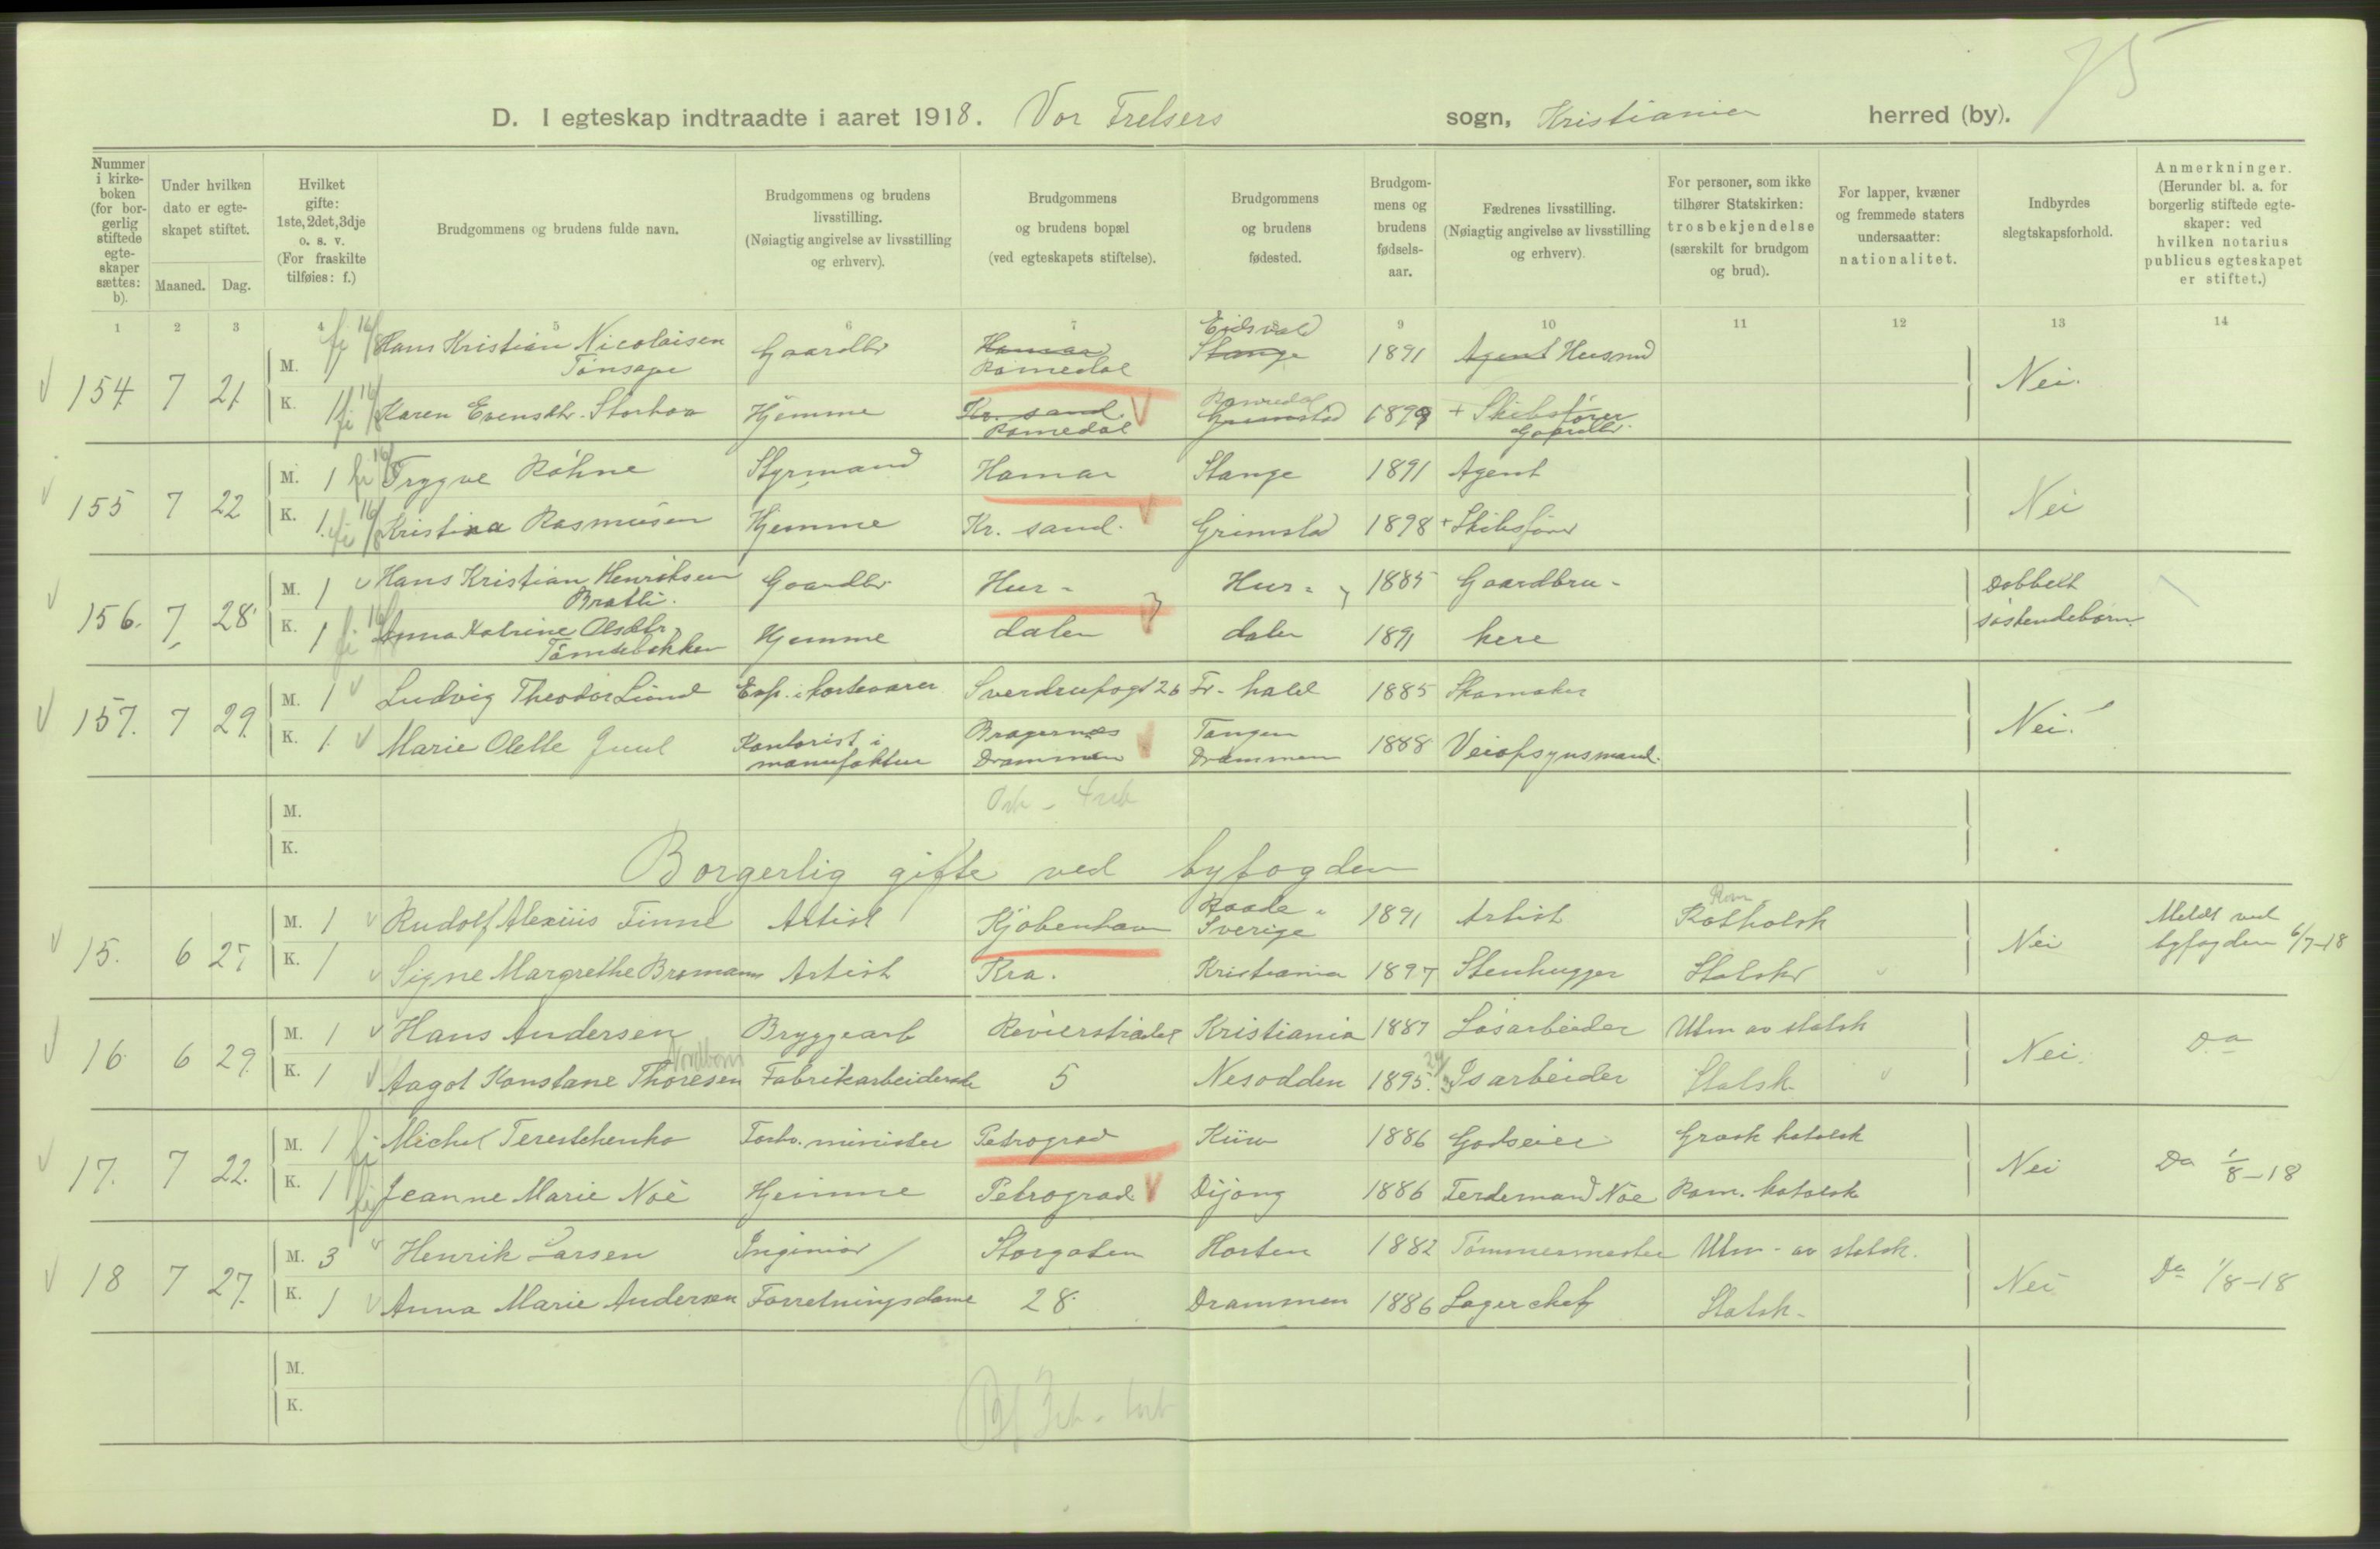 75
D. I egteskap indtraadte i aaret 1918. Vor Frelsers sogn, Kristiania herred (by).
Nummer i kirke-boken (for bor-gerlig stiftede egte-skaper sættes: b).
Under hvilken dato er egte-skapet stiftet.
Maaned. Dag.
Hvilket gifte: 1ste, 2det, 3dje o. s. v. (For fraskilte tilføies: f.)
Brudgommens og brudens fulde navn.
Brudgommens og brudens livsstilling. (Nøiagtig angivelse av livsstilling og erhverv).
Brudgommens og brudens bopæl (ved egteskapets stiftelse).
Brudgommens og brudens fødested.
Brudgom-mens og brudens fødsels-aar.
Fædrenes livsstilling. (Nøiagtig angivelse av livsstilling og erhverv).
For personer, som ikke tilhører Statskirken: trosbekjendelse (særskilt for brudgom og brud).
For lapper, kvæner og fremmede staters undersaatter: nationalitet.
Indbyrdes slegtskapsforhold.
Anmerkninger. (Herunder bl. a. for borgerlig stiftede egte-skaper: ved hvilken notarius publicus egteskapet er stiftet.)
1 2 3 4 5 6 7 9 10 11 12 13 14
154 7 21 M. Hans Kristian Nicolaisen Tønsager Gaardbr Hamar Romedal Eidsvold Stange 1891 Agent Husmd Nei.
K. 1 Karen Evensdtr. Storhov Hjemme Kr. sand Romedal Romedal Grimstad 1899 + Skibsfører Gaardbr.
155 7 22 M. 1 Trygve Røhne Styrmand Hamar Stange 1891 Agent Nei
K. 1. Kristina Rasmusen Hjemme Kr. sand. Grimstad 1898 + Skibsfører
156. 7 28 M. 1 Hans Kristian Henriksen Bratli. Gaardbr Hur- Hur- 1885 Gaardbru- Dobbelt
K. 1 Anna Katrine Olsdtr. Hjemme dalen dalen 1891 kere søskendebørn.
157. 7 29. M. 1 Ludvig Theodor Lund Exp. i kortevarer Sverdrupsgt 26 Fr. hald 1885 Skomaker Nei.
K. 1. Marie Olette Juul Kontorist i manufaktur Bragernæs Drammen Tangen Drammen 1888 Veiopsynsmand.
M.
K.
Borgerlig gifte ved byfogden
15. 6 27 M. 1 Rudolf Alexius Finne Artist Kjøbenhavn Sverige 1891 Artist Rom Katholsk Nei Meldt ved byfogden 6/7-18
K. 1 Signe Margrethe Bromann Artist Kra. Kristiania 1897 Stenhugger Statsk
16 6 29. M. 1 Hans Andersen Bryggearb Revierstrædet Kristiania 1887 Løsarbeider Utm av statsk Nei. Do
K. 1 Aagot Konstane Thoresen Nordbom Fabrikarbeiderske 5 Nesodden 1895. Isarbeider Statsk.
17. 7 22. M. 1 Michel Terestchenko Forhv. minister Petrograd Kiiw 1886 Godseier Græsk katolsk Nei Do 1/8-18
K. 1 Jeanne Marie Noë Hjemme Petrograd Dijong 1886 Ferdemand Nöe Rom. katolsk
18 7 27. M. 3 Henrik Larsen Ingeniør Storgaten Horten 1882 Tømmermester Utm. av statsk. Nei Do 1/8-18
K. 1 Anna Marie Andersen Forretningsdame 28. Drammen 1886 Lagerchef Statsk-
M.
K.